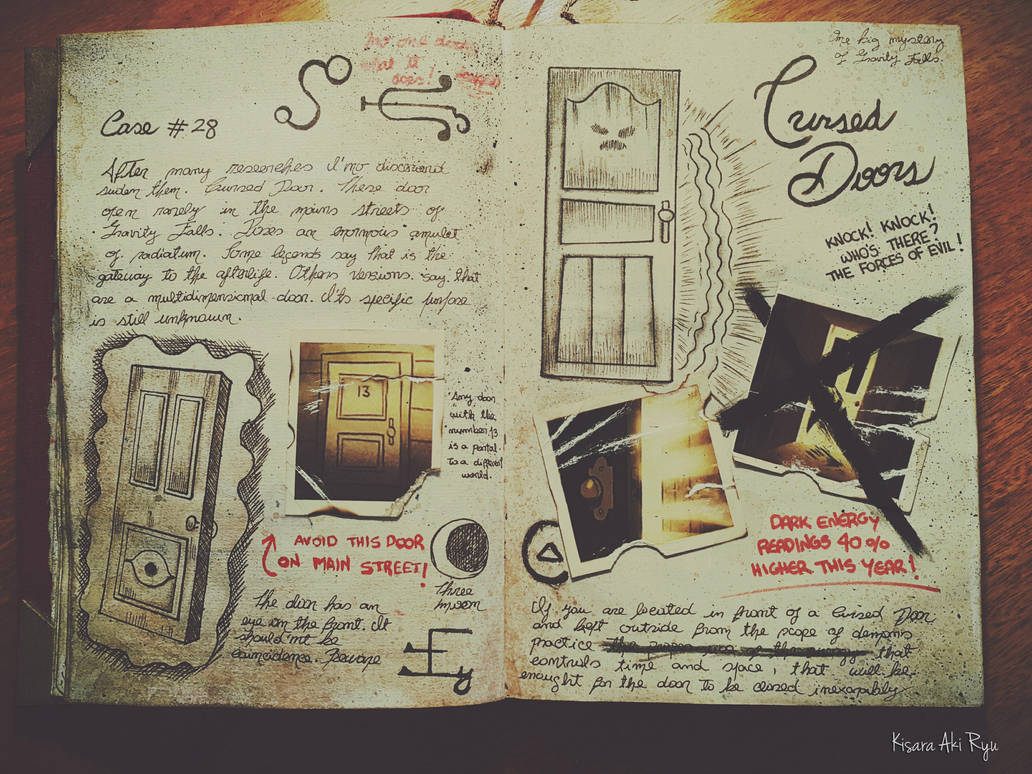 no one does
what it
does!
Case #28
After many researches I'mo discovered
suden them. Cursed Door. These door
open rarely in the mains streets of
Gravity Falls. Doses an enormous amulet
of radiatum. Some legends say that is the
gateway to the afterlife. Others versions say that
are a multidimensional door. It's specific purpose
is still unknown.
13
"Any door
with the
number 13
is a portal
to a different
world.
AVOID THIS DOOR
ON MAIN STREET!
Three
moon
The door has an
eye on the front. It
should'nt be
coincidence. Beware
One big mystery
of Gravity Falls.
Cursed
Doors
KNOCK! KNOCK!
WHO'S THERE?
THE FORCES OF EVIL!
DARK ENERGY
READINGS 40%
HIGHER THIS YEAR!
If you are located in front of a Cursed Door
and kept outside from the scope of demons
practice that
controls time and space, that will be
enought for the door to be closed inexorably.
Kisara Aki Ryu